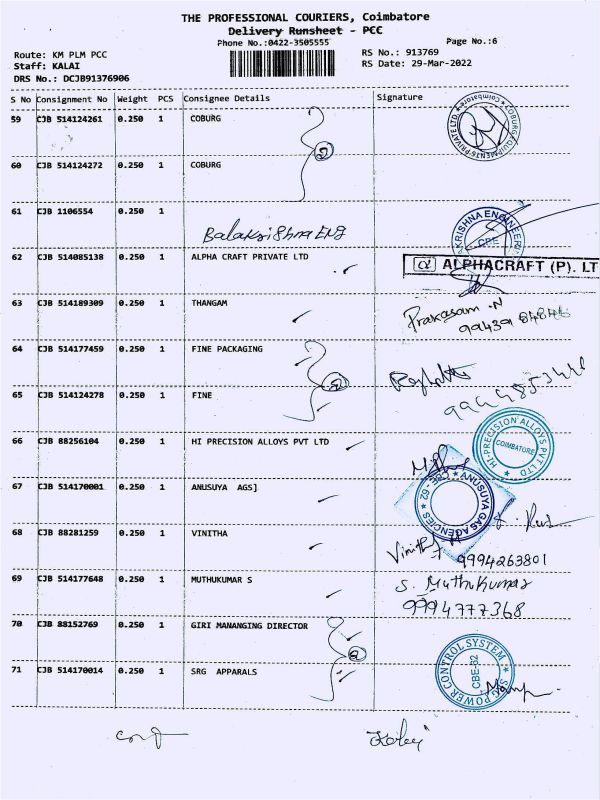 THE PROFESSIONAL COURIERS, Coimbatore
Delivery Runsheet - PCC
Phone No.:0422-3505555
Page No.:6
Route: KM PLM PCC
RS No.: 913769
Staff: KALAI
RS Date: 29-Mar-2022
DRS No.: DCJB91376906
S No Consignment No Weight PCS Consignee Details Signature
59 CJB 514124261 0.250 1 COBURG
COBURG EQUIPMENTS PRIVATE LTD. Coimbatore
2
60 CJB 514124272 0.250 1 COBURG
61 CJB 1106554 0.250 1
Balakrishna ENG
KRISHNA ENGINEERI
CBE
62 CJB 514085138 0.250 1 ALPHA CRAFT PRIVATE LTD
α ALPHACRAFT (P). LT
63 CJB 514189309 0.250 1 THANGAM
Prakasam .N
64 CJB 514177459 0.250 1 FINE PACKAGING
2
65 CJB 514124278 0.250 1 FINE
66 CJB 88256104 0.250 1 HI PRECISION ALLOYS PVT LTD
HI-PRECISION ALLOYS PVT LTD
COIMBATORE
67 CJB 514170001 0.250 1 ANUSUYA AGS]
ANUSUYA GAS AGENCIES CBE-62
68 CJB 88281259 0.250 1 VINITHA
9994263801
69 CJB 514177648 0.250 1 MUTHUKUMAR S
S. Muthukumar
9994777368
70 CJB 88152769 0.250 1 GIRI MANANGING DIRECTOR
2
71 CJB 514170014 0.250 1 SRG APPARALS
SRG POWER CONTROL SYSTEM
CBE-62